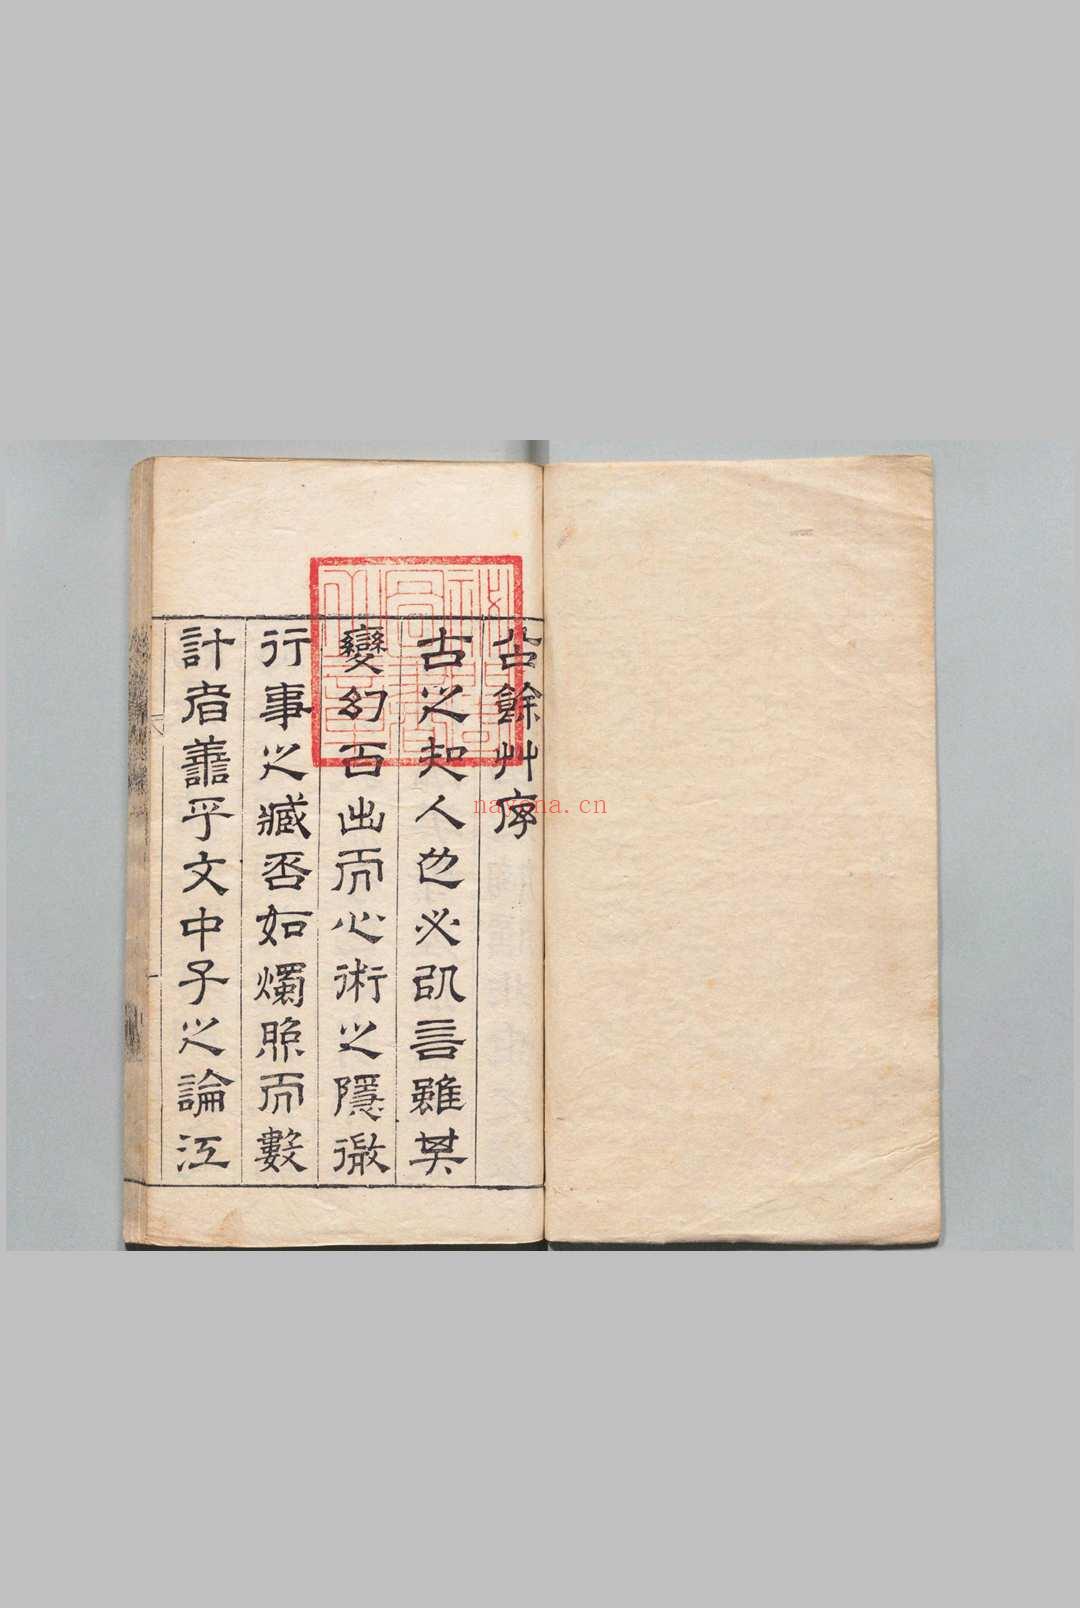 公餘艸序
古之知人也必以言雖其
變幻百出而心術之隱微
行事之臧否如燭照而數
計者譱乎文中子之論江
nayona.cn